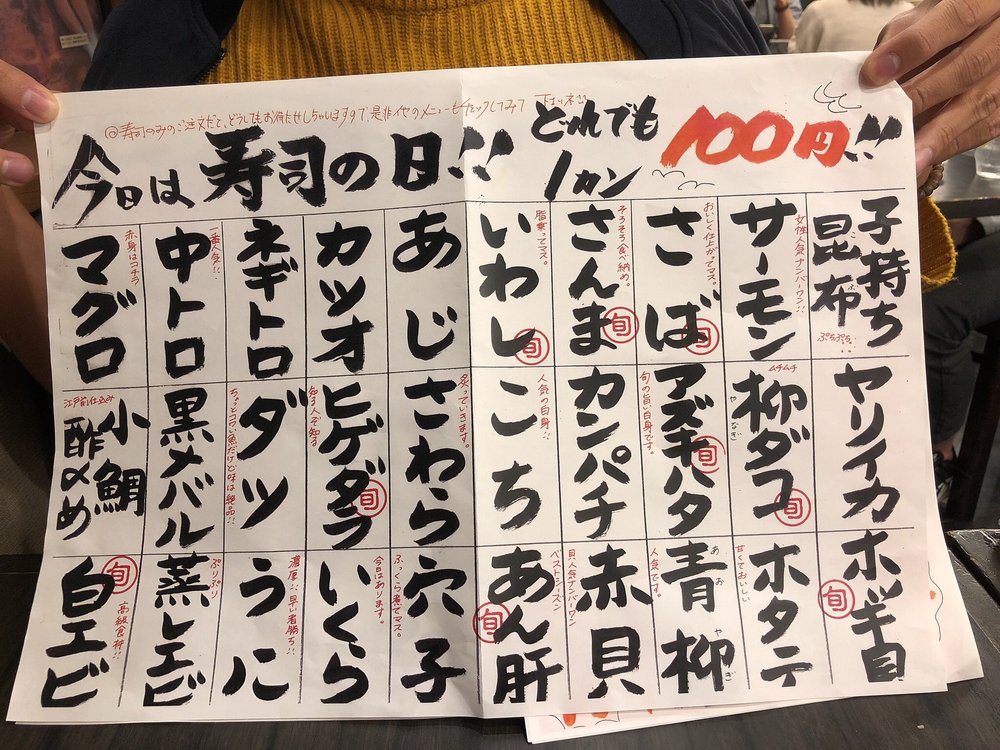 ◎寿司のみのご注文だと、どうしてもお待たせしちゃいますので、是非他のメニューもチェックしてみて下さいネ!!
今日は寿司の日!!
どれでも
1カン
100円!!
子持ち
昆布
ぷちぷち
サーモン
女性人気ナンバーワン!!
さば
おいしく仕上がってマス。
旬
さんま
そろそろ食べ納め。
旬
いわし
脂乗ってマス。
旬
あじ
カツオ
ネギトロ
中トロ
一番人気!!
マグロ
赤身はコチラ
ヤリイカ
柳ダコ
やなぎ
ムチムチ
旬
アズキハタ
旬の旨い白身です。
旬
カンパチ
こち
人気の白身!!
さわら
炙っていきます。
ヒゲダラ
知る人ぞ知る
旬
ダツ
ちょっとコワい魚だけど味は絶品!!
黒メバル
小鯛
酢〆め
江戸前仕込み
ホッキ貝
旬
ホタテ
甘くておいしい
青柳
あおやぎ
人気です。
赤貝
貝く人気ナンバーワン
あん肝
ベストシーズン
旬
穴子
ふっくら煮てマス。
いくら
今日はあります。
うに
濃厚!!、早い者勝ち!!
蒸しエビ
ぷりぷり
白エビ
高級食材!!
旬